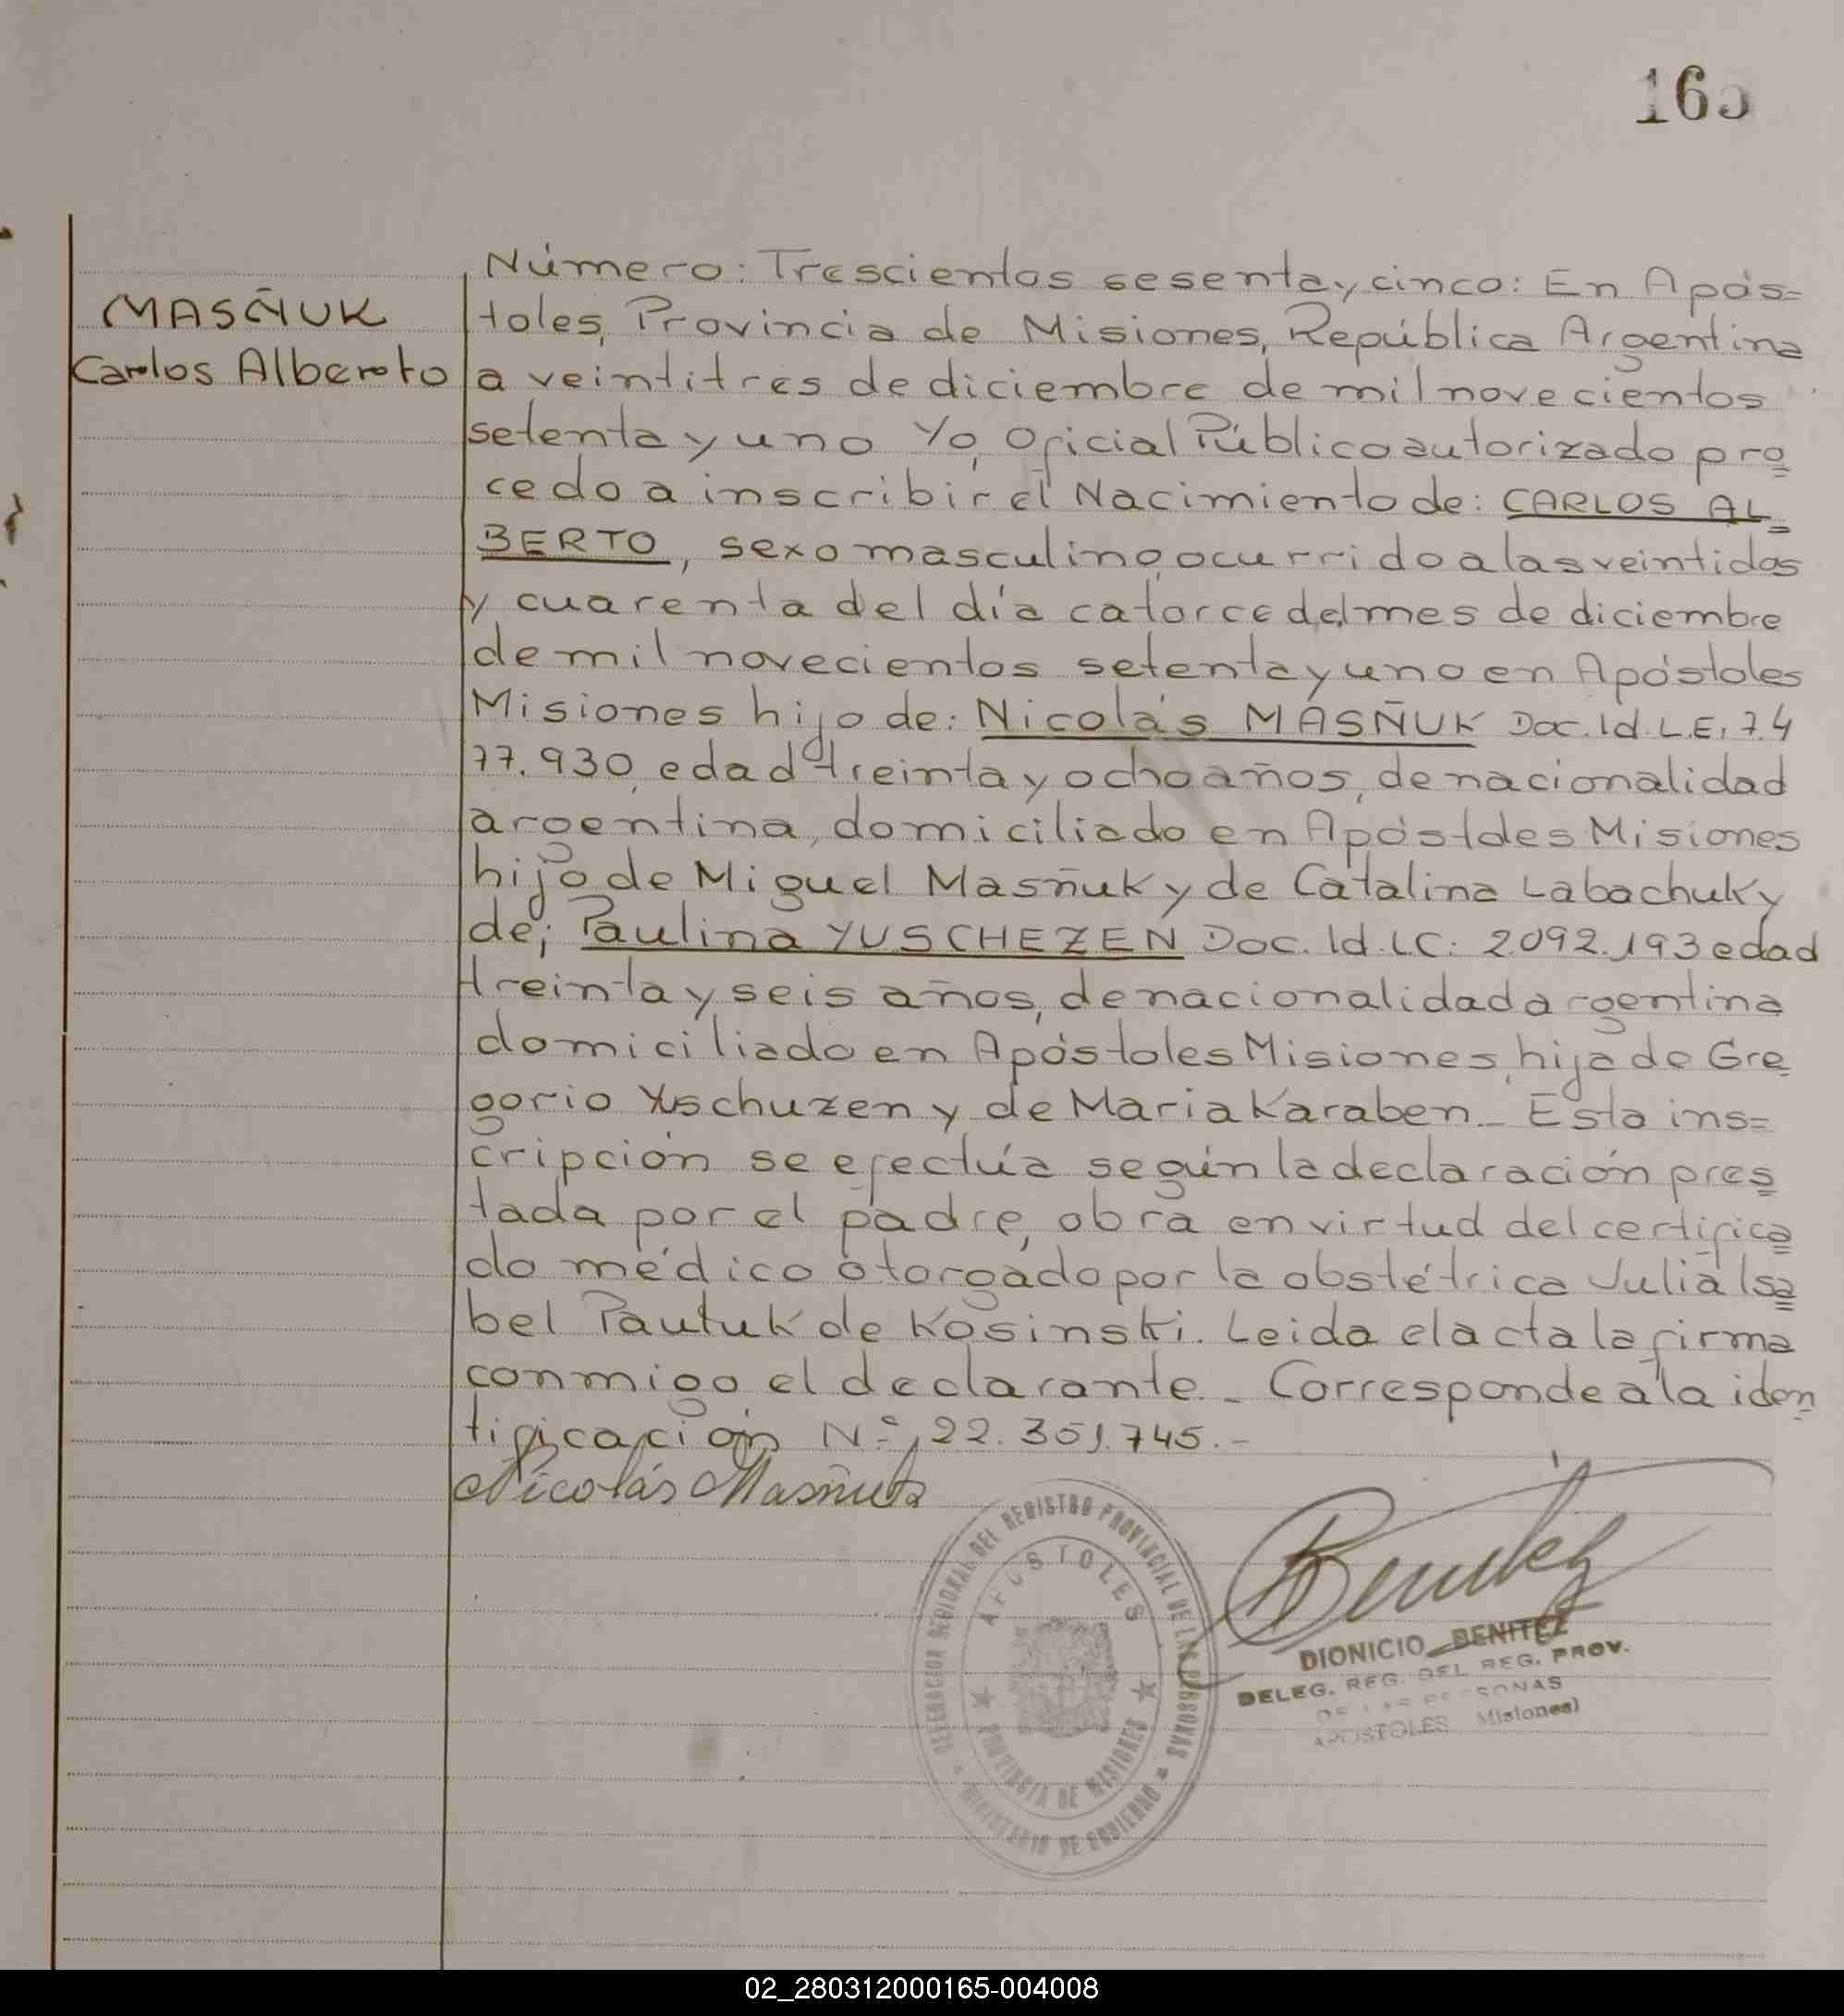 165
MASÑUK
Carlos Alberto
Número: Trescientos sesenta y cinco: En Após=
toles, Provincia de Misiones, República Argentina
a veintitres de diciembre de mil novecientos
setenta y uno Yo, Oficial Público autorizado pro=
cedo a inscribir el Nacimiento de: CARLOS AL=
BERTO, sexo masculino, ocurrido a las veintidos
y cuarenta del día catorce del mes de diciembre
de mil novecientos setenta y uno en Apóstoles
Misiones hijo de: Nicolás MASÑUK Doc. Id. L.E. 7.4
77.930, edad treinta y ocho años, de nacionalidad
argentina, domiciliado en Apóstoles Misiones
hijo de Miguel Masñuk y de Catalina Labachuk y
de; Paulina YUSCHEZEN Doc. Id. L.C. 2.092.193 edad
treinta y seis años, de nacionalidad argentina
domiciliado en Apóstoles Misiones, hija de Gre=
gorio Yuschuzen y de Maria Karaben_ Esta ins=
cripción se efectúa según la declaración pres=
tada por el padre, obra en virtud del certifica=
do médico otorgado por la obstétrica Julia Isa=
bel Pautuk de Kosinski. Leida el acta la firma
conmigo el declarante_ Corresponde a la iden=
tificación Nº 22.351.745.-
Nicolás Masñuk
DELEGACION REGIONAL DEL REGISTRO PROVINCIAL DE LAS PERSONAS
APOSTOLES
PROVINCIA DE MISIONES
MINISTERIO DE GOBIERNO
Benitez
DIONICIO BENITEZ
DELEG. REG. DEL REG. PROV.
DE LAS PERSONAS
APOSTOLES Misiones)
02_280312000165-004008